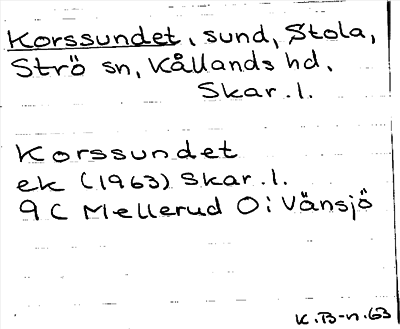 Korssundet, sund, Stola,
Strö sn, Kållands hd.
Skar.l.
Korssundet
ek (1963) Skar.l.
9C Mellerud O i Vänsjö
K.B-n.63